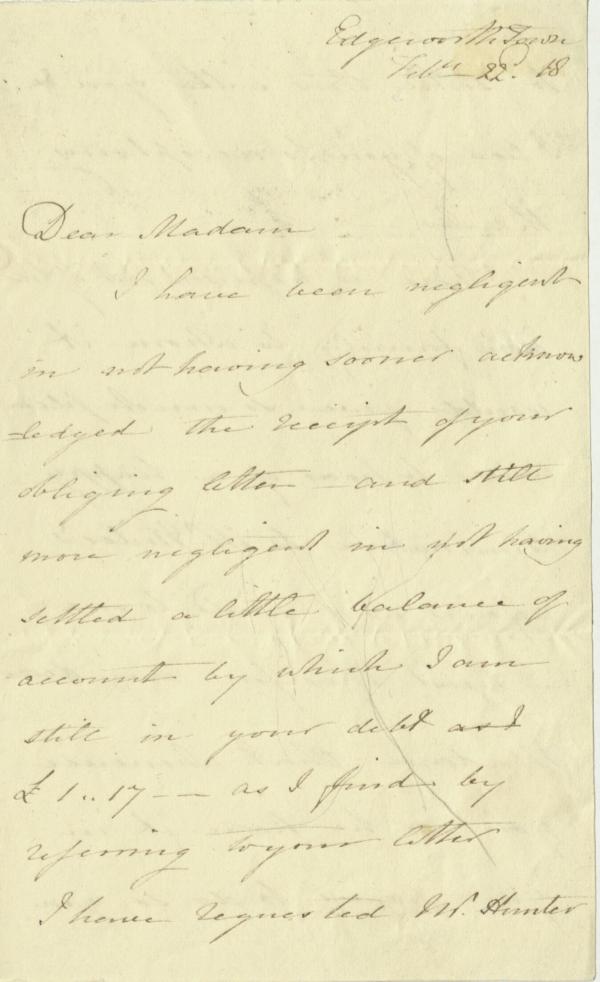 Edgeworth Town
Feb.ry 22.d 18
Dear Madam
I have been negligent
in not having sooner acknow
=ledged the receipt of your
obliging letter - and still
more negligent in not having
settled a little balance of
account by which I am
still in your debt as I
£ 1 .. 17 - - as I find by
referring to your letter
I have requested Mr. Hunter